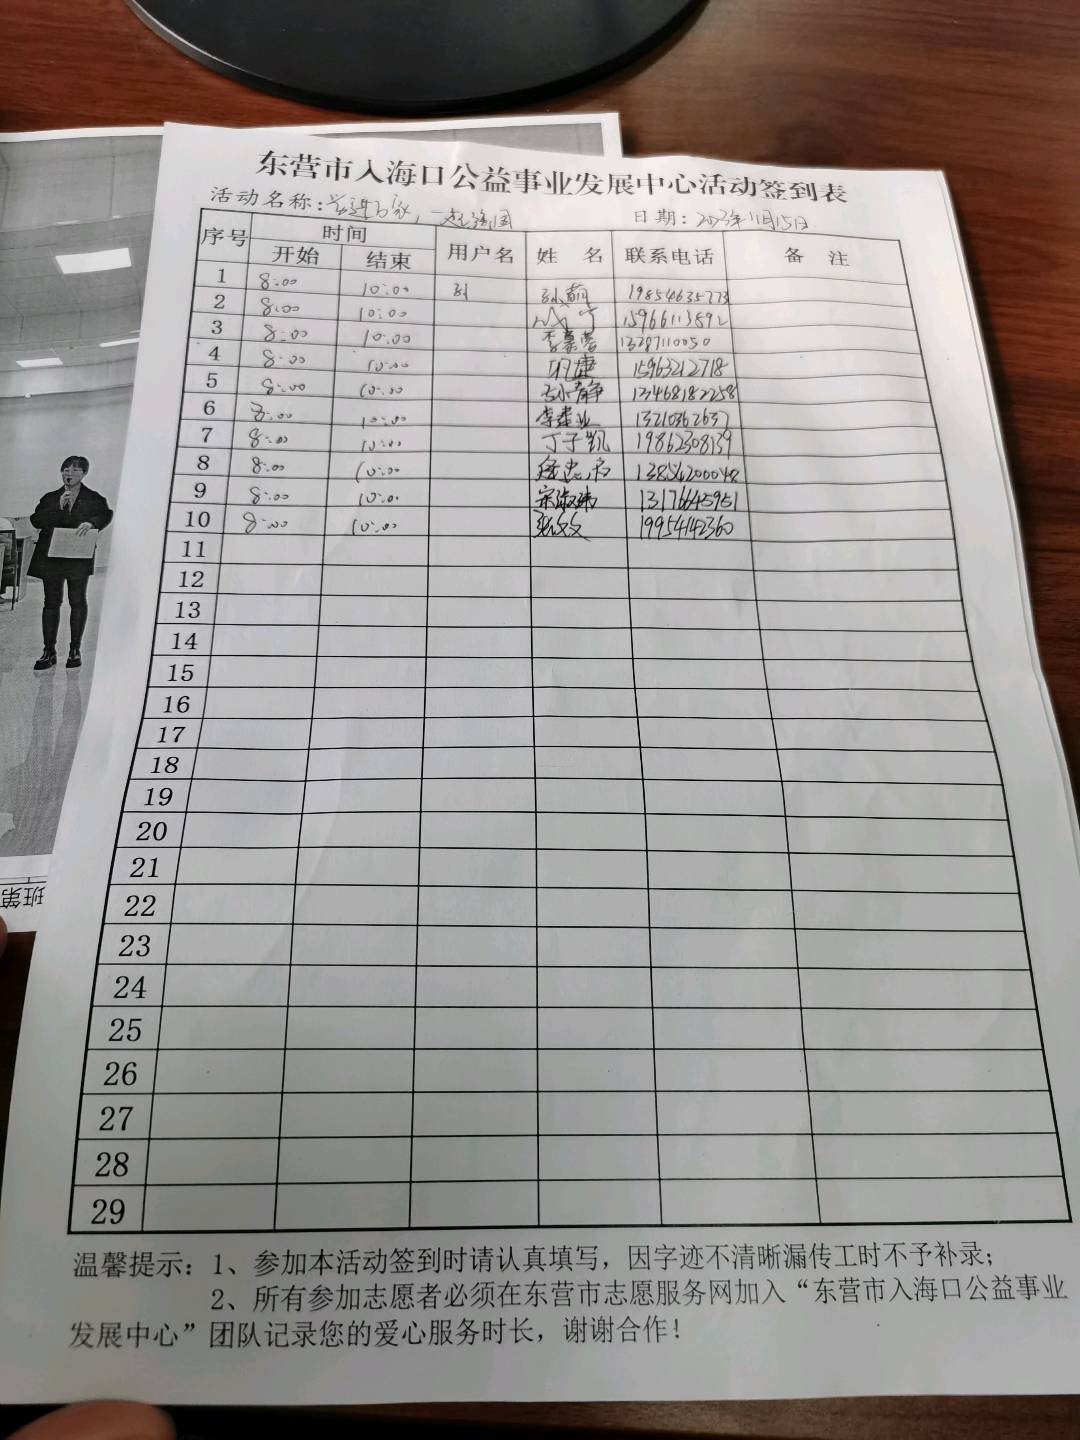 东营市入海口公益事业发展中心活动签到表
活动名称：走进百家，一起强国 日期：2023年11月15日
序号 时间 用户名 姓 名 联系电话 备 注
开始 结束
1 8:00 10:00 孙 孙萌 19854635773
2 8:00 10:00 15966113892
3 8:00 10:00 李慕蓉 13287110050
4 8:00 10:00 15963212718
5 8:00 10:00 孟小静 13468182258
6 8:00 10:00 李建业 13210362637
7 8:00 10:00 丁子凯 19862308139
8 8:00 10:00 13854200048
9 8:00 10:00 宋淑炜 13176645951
10 8:00 10:00 张文文 19954142360
11
12
13
14
15
16
17
18
19
20
21
22
23
24
25
26
27
28
29
温馨提示：1、参加本活动签到时请认真填写，因字迹不清晰漏传工时不予补录；
2、所有参加志愿者必须在东营市志愿服务网加入“东营市入海口公益事业
发展中心”团队记录您的爱心服务时长，谢谢合作！
班第